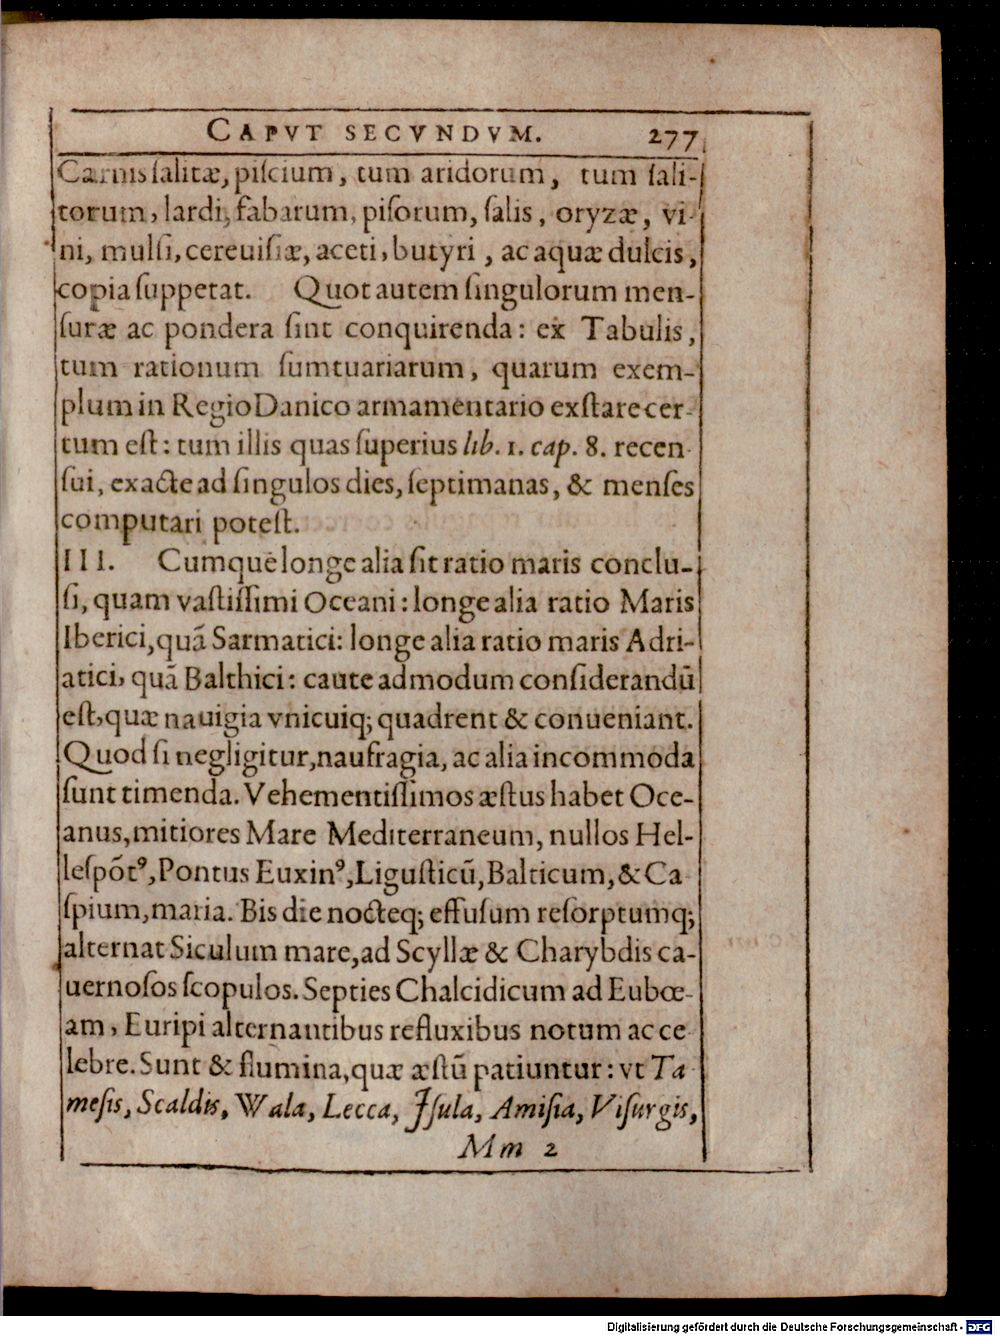 CAPVT SECVNDVM. 277
Carnis ſalitæ, piſcium, tum aridorum, tum ſali-
torum, lardi, fabarum, piſorum, ſalis, oryzæ, vi-
ni, mulſi, cereuiſiæ, aceti, butyri, ac aquæ dulcis,
copia ſuppetat. Quot autem ſingulorum men-
ſuræ ac pondera ſint conquirenda: ex Tabulis,
tum rationum ſumtuariarum, quarum exem-
plum in Regio Danico armamentario exſtare cer-
tum eſt: tum illis quas ſuperius lib. 1. cap. 8. recen-
ſui, exacte ad ſingulos dies, ſeptimanas, & menſes
computari poteſt.
III. Cumque longe alia ſit ratio maris conclu-
ſi, quam vaſtiſſimi Oceani: longe alia ratio Maris
Iberici, quã Sarmatici: longe alia ratio maris Adri-
atici, quã Balthici: caute admodum conſiderandũ
eſt, quæ nauigia vnicuiq; quadrent & conueniant.
Quod ſi negligitur, naufragia, ac alia incommoda
ſunt timenda. Vehementiſſimos æſtus habet Oce-
anus, mitiores Mare Mediterraneum, nullos Hel-
leſpõtꝰ, Pontus Euxinꝰ, Liguſticũ, Balticum, & Ca
ſpium, maria. Bis die nocteq; effuſum reſorptumq;
alternat Siculum mare, ad Scyllæ & Charybdis ca-
uernoſos ſcopulos. Septies Chalcidicum ad Eubœ-
am, Euripi alternantibus refluxibus notum ac ce
lebre. Sunt & flumina, quæ æſtũ patiuntur: vt Ta
meſis, Scaldis, Wala, Lecca, Jſula, Amiſia, Viſurgis,
Mm 2
Digitalisierung gefördert durch die Deutsche Forschungsgemeinschaft - DFG